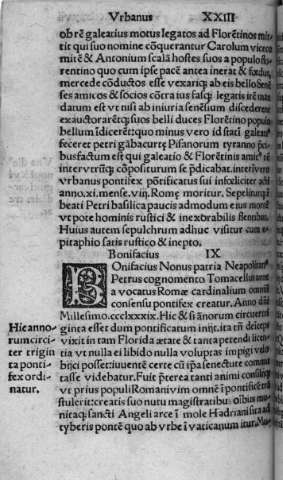 Vrbanus XXIII
ob rē galeacius motus legatos ad Florētinos mit
tit qui suo nomine cōquerantur Carolum viceco
mitē & Antonium scalā hostes suos a populo flo-
rentino quo cum ipse pacē antea inerat & fœdus,
mercede cōductos esse vexariq; ab eis bello Senē
ses amicos & socios cōtra ius fasq; legatis itē mā
datum est vt nisi ab iniuria senēsium discederent
exauctorarētq; suos belli duces Florētino populo
bellum īdicerēt: quo minus vero id statī galea
feceret petri gābacurtę Pisanorum tyranno p̄ci-
bus factum est qui galeatio & Florētinis amic⁹ rē
interventuq; cōpositurum se p̄dicabat. interim
urbanus pontifex pōtificatus sui infœliciter ad
anno. xi. mense. viij. Romę moritur. Sepelitur q̄
beati Petri basilica paucis admodum eius mortē
vt pote hominis rustici & inexorabilis flentibus.
Huius autem sepulchrum adhuc visitur cum e-
pitaphio satis rustico & inepto.
Bonifacius IX
BOnifacius Nonus patria Neapolitan⁹
Petrus cognomento Tomacelius ante
a vocatus Romæ cardinalium omniū
consensu pontifex creatur. Anno dñi
Millesimo.ccclxxxix. Hic & si ānorum circiter tri
ginta esset dum pontificatum inijt. ita tn̄ deicep
vixit in tam Florida ætate & tanta petendi licen-
tia vt nulla ei libido nulla voluptas impigi vel
bijci posset: iuuentē certe cū īp̄a senectute commu
tasse videbatur. Fuit p̄terea tanti animi consilijq;
vt prius populi Romani vim omnē ī pontificē trā
stulerit: creatis suo nutu magistratibus oībus mu
nitaq; sancti Angeli arce ī mole Hadriani sita ad
tyberis pontē quo ab vrbe ī vaticanum itur.
Hic anno-
rum circi-
ter trigin
ta ponti-
fex ordi-
natur.